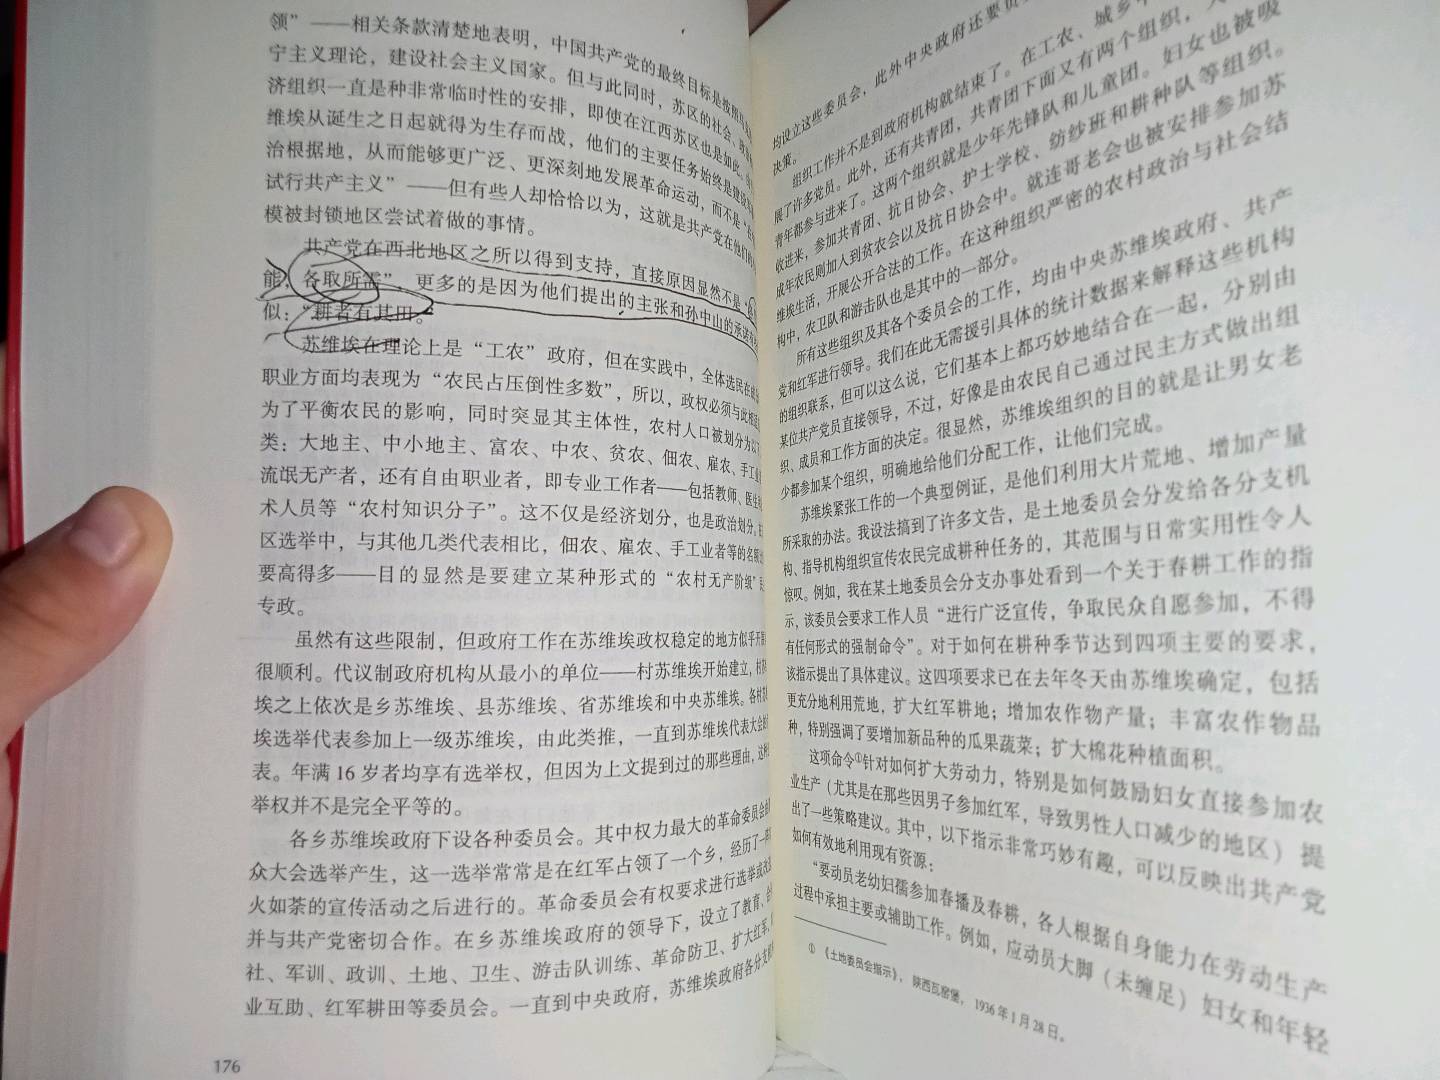 领”——相关条款清楚地表明，中国共产党的最终目标是按照
宁主义理论，建设社会主义国家。但与此同时，苏区的社会、
济组织一直是种非常临时性的安排，即使在江西苏区也是如此。
维埃从诞生之日起就得为生存而战，他们的主要任务始终是建设
治根据地，从而能够更广泛、更深刻地发展革命运动，而不是“在
试行共产主义”——但有些人却恰恰以为，这就是共产党在他们的
模被封锁地区尝试着做的事情。
共产党在西北地区之所以得到支持，直接原因显然不是“
能，各取所需”，更多的是因为他们提出的主张和孙中山的承诺
似：“耕者有其田。
苏维埃在理论上是“工农”政府，但在实践中，全体选民在
职业方面均表现为“农民占压倒性多数”，所以，政权必须与此相
为了平衡农民的影响，同时突显其主体性，农村人口被划分为以下
类：大地主、中小地主、富农、中农、贫农、佃农、雇农、手工业
流氓无产者，还有自由职业者，即专业工作者——包括教师、医生
术人员等“农村知识分子”。这不仅是经济划分，也是政治划分。在
区选举中，与其他几类代表相比，佃农、雇农、手工业者等的名额
要高得多——目的显然是要建立某种形式的“农村无产阶级”
专政。
虽然有这些限制，但政府工作在苏维埃政权稳定的地方似乎开展
很顺利。代议制政府机构从最小的单位——村苏维埃开始建立，村
埃之上依次是乡苏维埃、县苏维埃、省苏维埃和中央苏维埃。各村
埃选举代表参加上一级苏维埃，由此类推，一直到苏维埃代表大会
表。年满16岁者均享有选举权，但因为上文提到过的那些理由，
举权并不是完全平等的。
各乡苏维埃政府下设各种委员会。其中权力最大的革命委员会
众大会选举产生，这一选举常常是在红军占领了一个乡，经历了一
火如荼的宣传活动之后进行的。革命委员会有权要求进行选举或
并与共产党密切合作。在乡苏维埃政府的领导下，设立了教育、
社、军训、政训、土地、卫生、游击队训练、革命防卫、扩大红军、
业互助、红军耕田等委员会。一直到中央政府，苏维埃政府各分支
176
均设立这些委员会，此外中央政府还要
决策。
组织工作并不是到政府机构就结束了。在工农、城乡
展了许多党员。此外，还有共青团，共青团下面又有两个组织，
青年都参与进来了。这两个组织就是少年先锋队和儿童团。妇女也被吸
收进来，参加共青团、抗日协会、护士学校、纺纱班和耕种队等组织。
成年农民则加入到贫农会以及抗日协会中。就连哥老会也被安排参加苏
维埃生活，开展公开合法的工作。在这种组织严密的农村政治与社会结
构中，农卫队和游击队也是其中的一部分。
所有这些组织及其各个委员会的工作，均由中央苏维埃政府、共产
党和红军进行领导。我们在此无需援引具体的统计数据来解释这些机构
的组织联系，但可以这么说，它们基本上都巧妙地结合在一起，分别由
某位共产党员直接领导，不过，好像是由农民自己通过民主方式做出组
织、成员和工作方面的决定。很显然，苏维埃组织的目的就是让男女老
少都参加某个组织，明确地给他们分配工作，让他们完成。
苏维埃紧张工作的一个典型例证，是他们利用大片荒地、增加产量
所采取的办法。我设法搞到了许多文告，是土地委员会分发给各分支机
构、指导机构组织宣传农民完成耕种任务的，其范围与日常实用性令人
惊叹。例如，我在某土地委员会分支办事处看到一个关于春耕工作的指
示，该委员会要求工作人员“进行广泛宣传，争取民众自愿参加，不得
有任何形式的强制命令”。对于如何在耕种季节达到四项主要的要求，
该指示提出了具体建议。这四项要求已在去年冬天由苏维埃确定，包括
更充分地利用荒地，扩大红军耕地；增加农作物产量；丰富农作物品
种，特别强调了要增加新品种的瓜果蔬菜；扩大棉花种植面积。
这项命令①针对如何扩大劳动力，特别是如何鼓励妇女直接参加农
业生产（尤其是在那些因男子参加红军，导致男性人口减少的地区）提
出了一些策略建议。其中，以下指示非常巧妙有趣，可以反映出共产党
如何有效地利用现有资源：
“要动员老幼妇孺参加春播及春耕，各人根据自身能力在劳动生产
过程中承担主要或辅助工作。例如，应动员大脚（未缠足）妇女和年轻
① 《土地委员会指示》，陕西瓦窑堡，1936年1月28日。